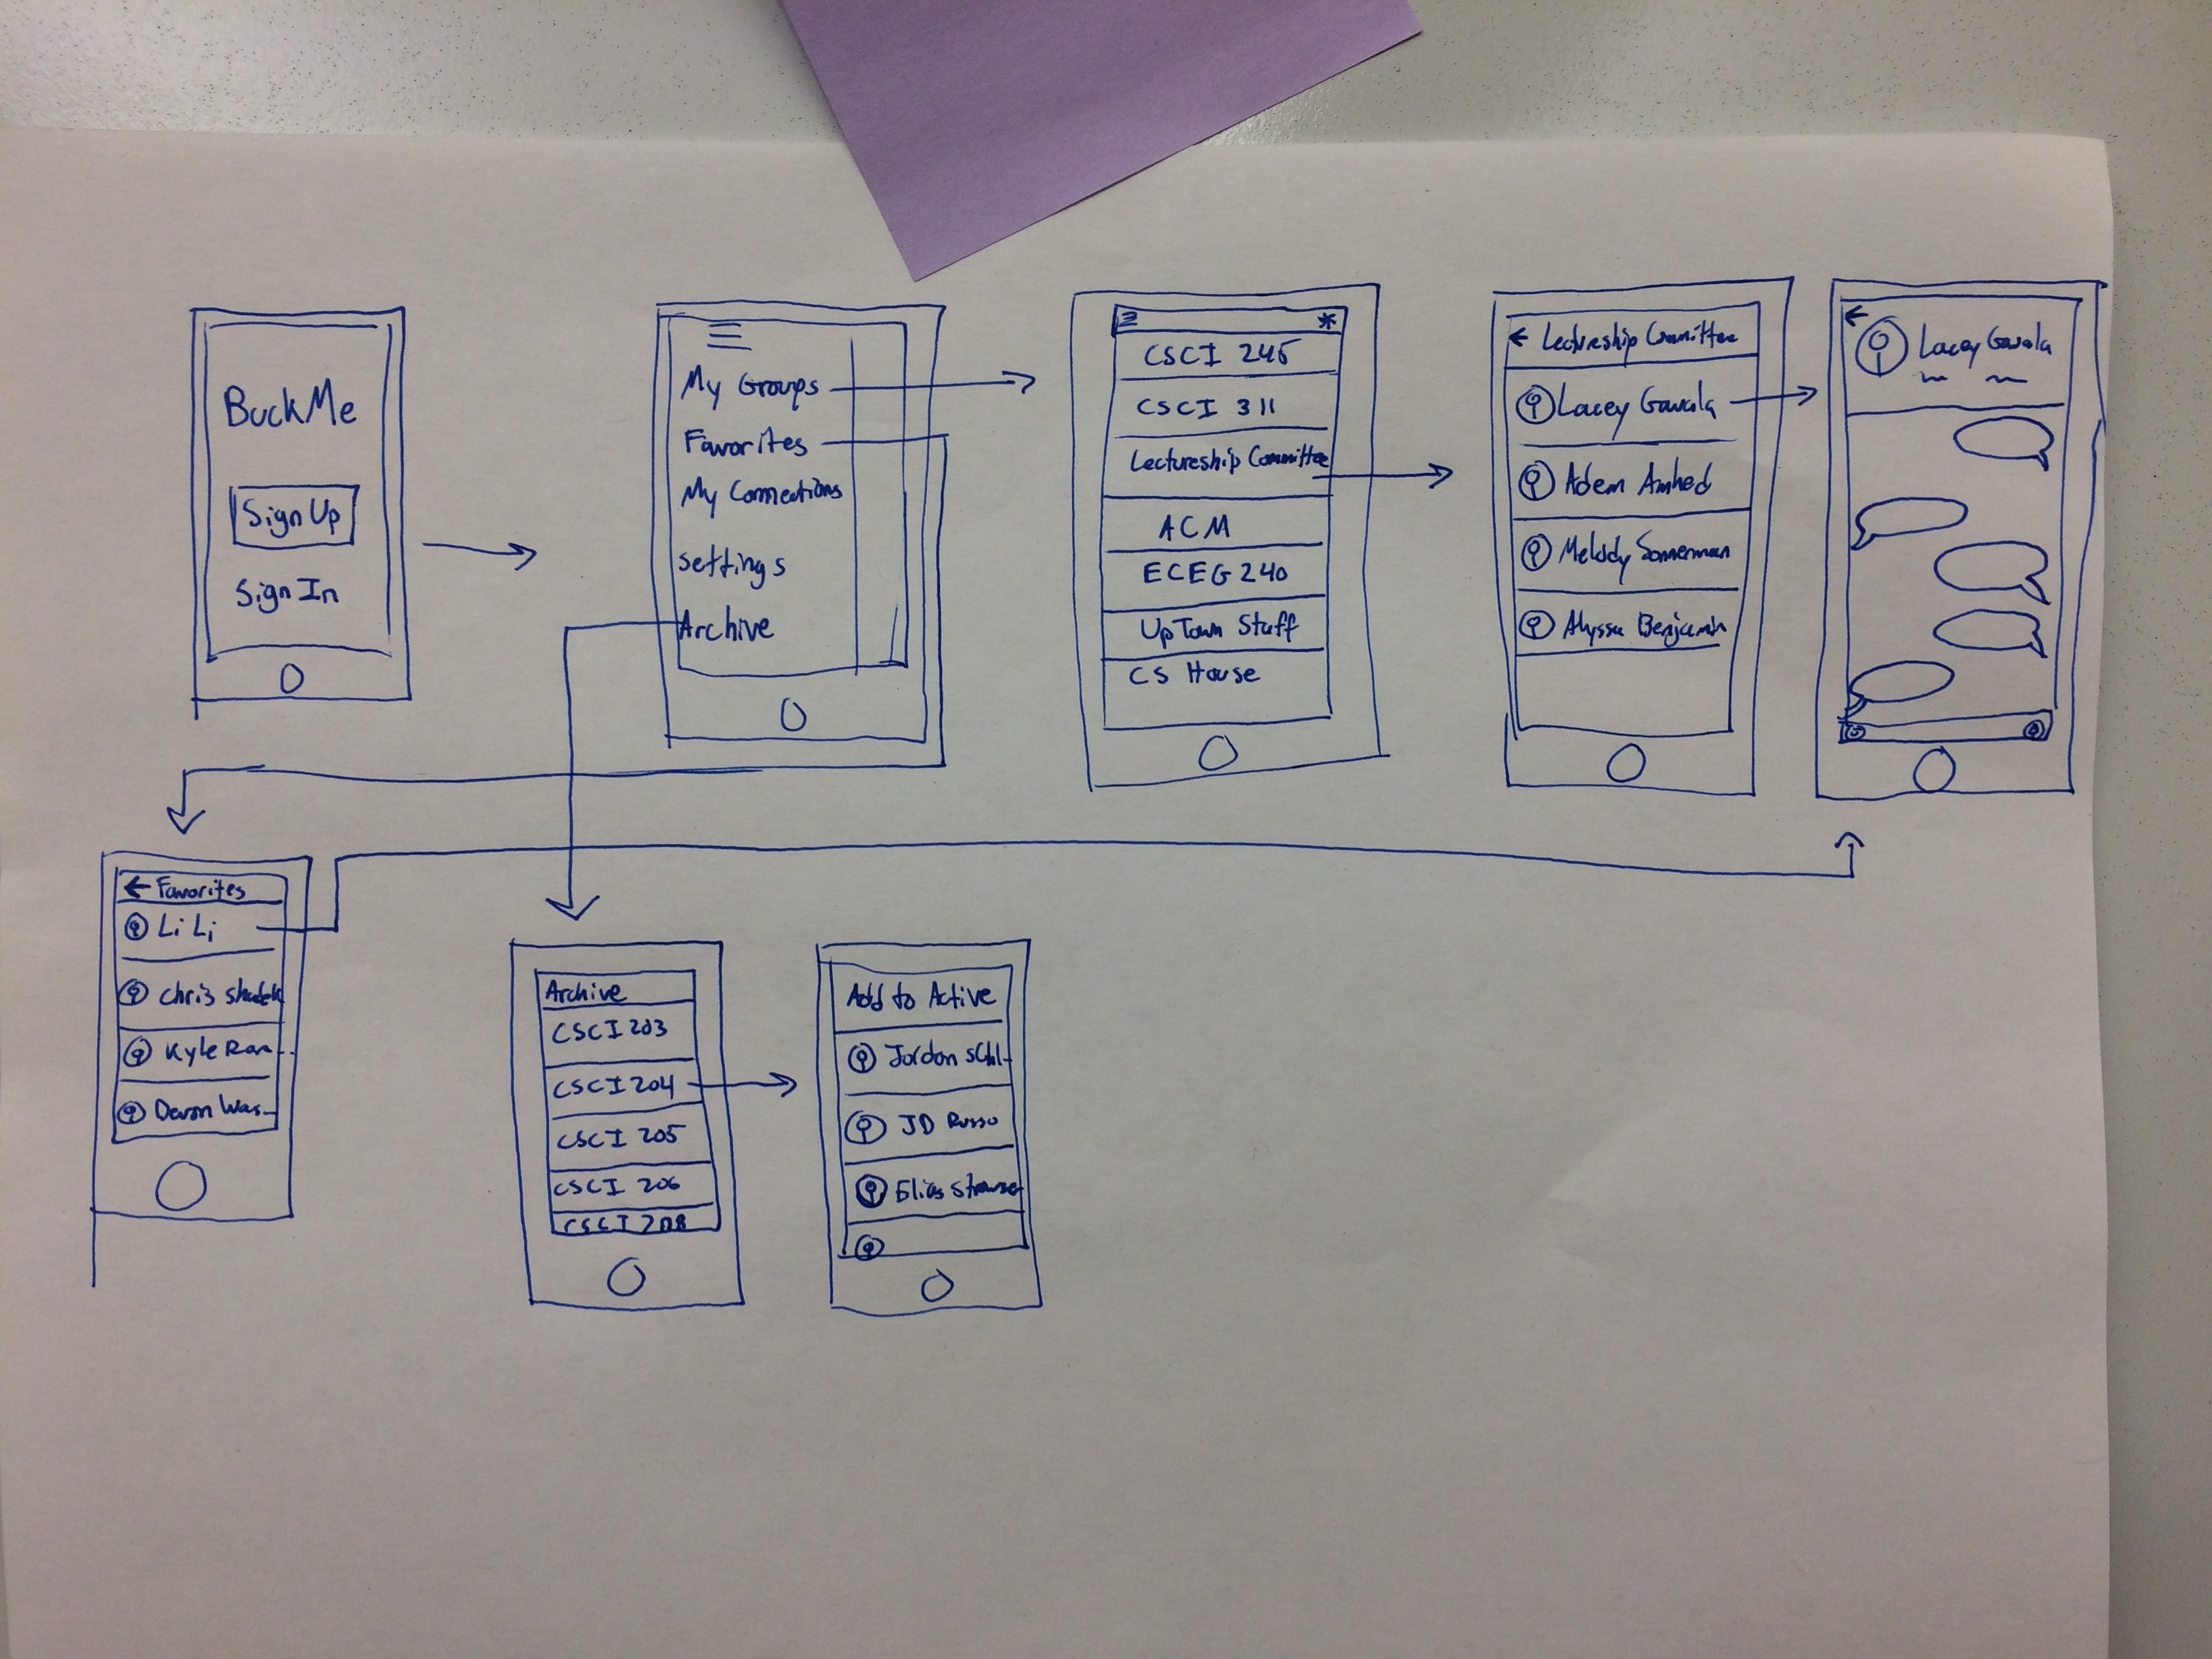 BuckMe
Sign Up
Sign In
My Groups
Favorites
My Connections
settings
Archive
CSCI 245
CSCI 311
Lectureship Committee
ACM
ECEG 240
UpTown Stuff
CS House
Lectureship Committee
Lacey Gavala
Adem Amhed
Melody Sonnerman
Alyssa Benjamin
Lacey Gavala
Favorites
Li Li
Chris
Kyle Ran--
Devon Was_
Archive
CSCI 203
CSCI 204
CSCI 205
CSCI 206
CSCI 208
Add to Active
Jordan Schl-
JD Russo
Elias Strauser